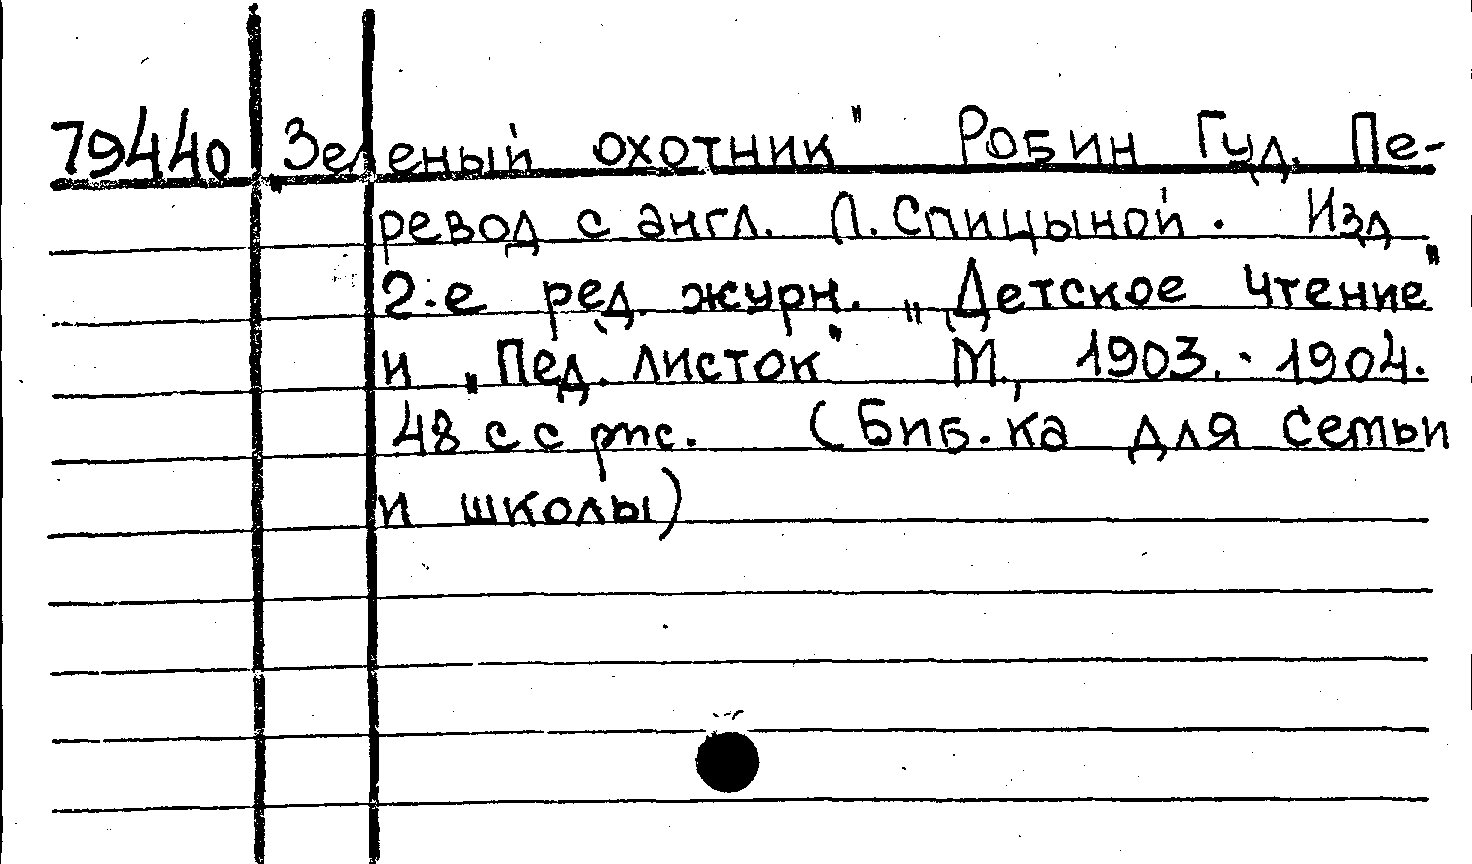 79440 „Зеленый охотник" Робин Гуд. Пе-
ревод с англ. Л. Спицыной. Изд
2-е ред. журн. „Детское чтение"
и „Пед. листок" М., 1903.-1904.
48 с с рис. (Биб.-ка для семьи
и школы)